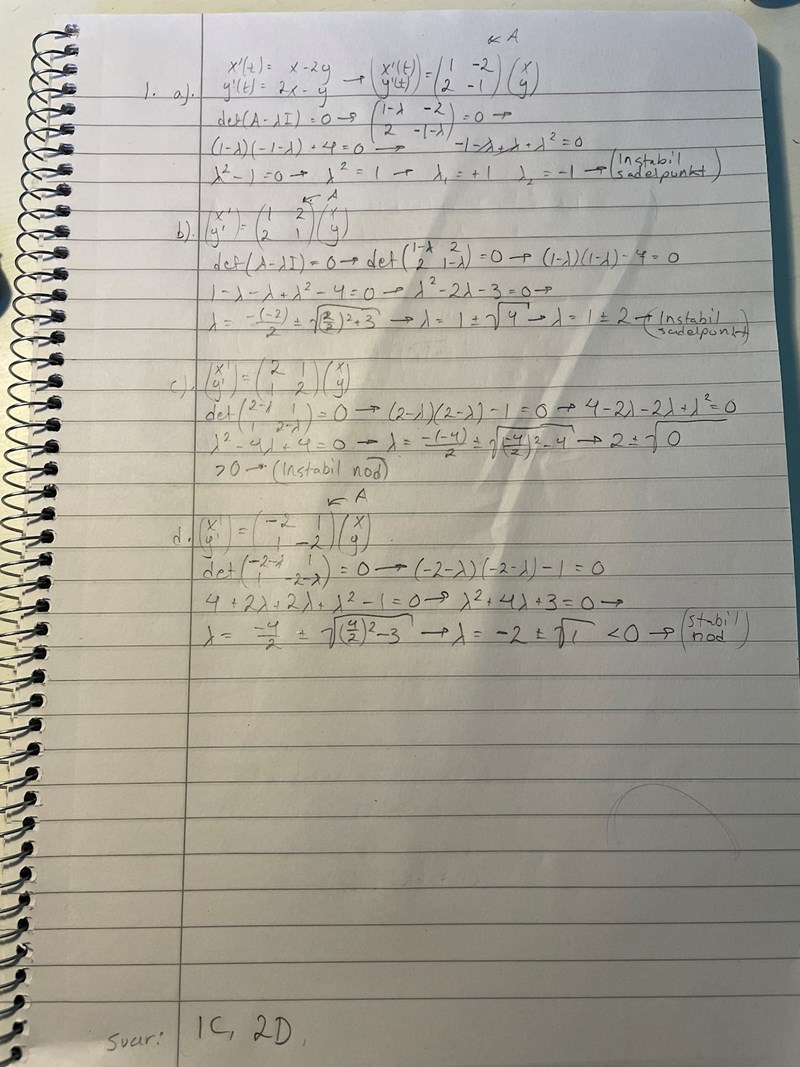 ↙ A
1. a). x'(t) = x - 2y
y'(t) = 2x - y → (x'(t) y'(t)) = (1 -2 2 -1) (x y)
det(A-λI) = 0 → (1-λ -2 2 -1-λ) = 0 →
(1-λ)(-1-λ) + 4 = 0 → -1-λ+λ+λ² = 0
λ² - 1 = 0 → λ² = 1 → λ₁ = +1 λ₂ = -1 → (Instabil sadelpunkt)
↙ A
b). (x' y') = (1 2 2 1) (x y)
det(A-λI) = 0 → det(1-λ 2 2 1-λ) = 0 → (1-λ)(1-λ) - 4 = 0
1-λ-λ+λ² - 4 = 0 → λ² - 2λ - 3 = 0 →
λ = -(-2)/2 ± √((2/2)² + 3) → λ = 1 ± √4 → λ = 1 ± 2 → (Instabil sadelpunkt)
c). (x' y') = (2 1 1 2) (x y)
det(2-λ 1 1 2-λ) = 0 → (2-λ)(2-λ) - 1 = 0 → 4 - 2λ - 2λ + λ² = 0
λ² - 4λ + 4 = 0 → λ = -(-4)/2 ± √((-4/2)² - 4) → 2 ± √0
>0 → (Instabil nod)
↙ A
d. (x' y') = (-2 1 1 -2) (x y)
det(-2-λ 1 1 -2-λ) = 0 → (-2-λ)(-2-λ) - 1 = 0
4 + 2λ + 2λ + λ² - 1 = 0 → λ² + 4λ + 3 = 0 →
λ = -4/2 ± √((4/2)² - 3) → λ = -2 ± √1 < 0 → (stabil nod)
Svar: 1C, 2D,